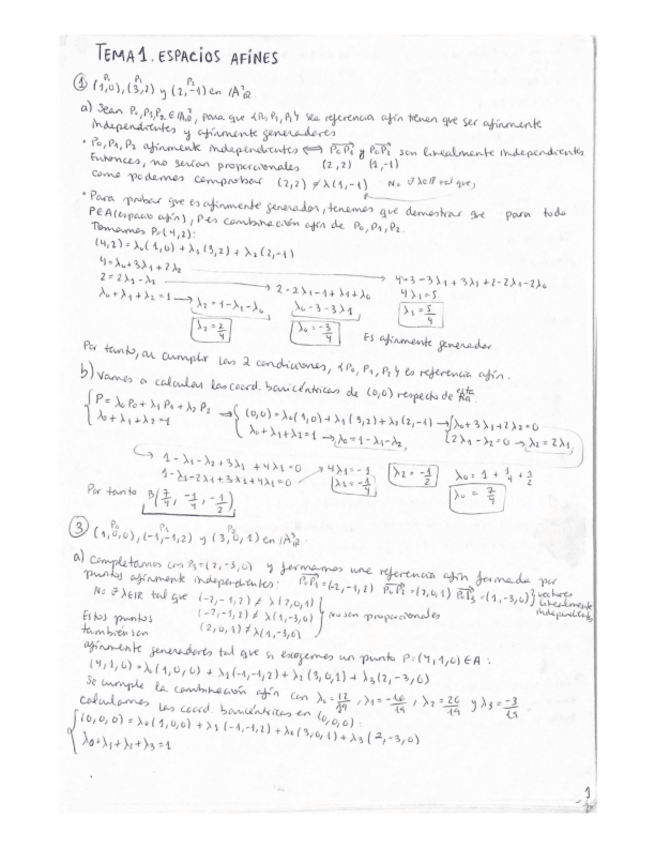 TEMA 1. ESPACIOS AFINES
P₀ P₁ P₂
① (1,0), (3,2) y (2,-1) en /A²ᵣ.
a) Sean P₀,P₁,P₂ ∈ /A²ᵣ, para que {P₀,P₁,P₂} sea referencia afín tienen que ser afínmente
independientes y afínmente generadores
• P₀,P₁,P₂ afínmente independientes ⟺ P₀P₁ y P₀P₂ son linealmente independientes
Entonces, no serían proporcionales (2,2) (1,-1)
como podemos comprobar (2,2) ≠ λ(1,-1) No ∃ λ∈R tal que,
• Para probar que es afínmente generador, tenemos que demostrar que para todo
P∈A (espacio afín), P es combinación afín de P₀,P₁,P₂.
Tomamos P=(4,2):
(4,2)=λ₀(1,0)+λ₁(3,2)+λ₂(2,-1)
4=λ₀+3λ₁+2λ₂ → 4=3-3λ₁+3λ₁+2-2λ₁-2λ₀
2=2λ₁-λ₂ → 2=2λ₁-1+λ₁+λ₀ 4λ₁=5
λ₀+λ₁+λ₂=1 → λ₂=1-λ₁-λ₀ λ₀=3-3λ₁ λ₁=5/4
λ₂=2/4 λ₀=-3/4 Es afínmente generador
Por tanto, al cumplir las 2 condiciones, {P₀,P₁,P₂} es referencia afín.
b) Vamos a calcular las coord. baricéntricas de (0,0) respecto de esta
P=λ₀P₀+λ₁P₁+λ₂P₂ → (0,0)=λ₀(1,0)+λ₁(3,2)+λ₂(2,-1) → λ₀+3λ₁+2λ₂=0
λ₀+λ₁+λ₂=1 λ₀+λ₁+λ₂=1 → λ₀=1-λ₁-λ₂, 2λ₁-λ₂=0 → λ₂=2λ₁,
1-λ₁-λ₂+3λ₁+4λ₁=0 4λ₁=-1 λ₂=-1/2 λ₀=1+1/4+1/2
1-λ₁-2λ₁+3λ₁+4λ₁=0 λ₁=-1/4 λ₀=7/4
Por tanto B(7/4, -1/4, -1/2)
P₀ P₁ P₂
③ (1,0,0), (-1,-1,2) y (3,0,1) en /A³ᵣ.
a) completamos con P₃=(2,-3,0) y formamos una referencia afín formada por
puntos afínmente independientes: P₀P₁=(-2,-1,2) P₀P₂=(2,0,1) P₀P₃=(1,-3,0) vectores linealmente independientes
No ∃ λ∈R tal que (-2,-1,2) ≠ λ(2,0,1)
(-2,-1,2) ≠ λ(1,-3,0) No son proporcionales
(2,0,1) ≠ λ(1,-3,0)
Estos puntos
también son
afínmente generadores tal que si escogemos un punto P=(4,1,0)∈A:
(4,1,0)=λ₀(1,0,0)+λ₁(-1,-1,2)+λ₂(3,0,1)+λ₃(2,-3,0)
Se cumple la combinación afín con λ₀=12/19, λ₁=-10/19, λ₂=20/19 y λ₃=-3/19
calculamos las coord baricéntricas en (0,0,0):
(0,0,0)=λ₀(1,0,0)+λ₁(-1,-1,2)+λ₂(3,0,1)+λ₃(2,-3,0)
λ₀+λ₁+λ₂+λ₃=1
1